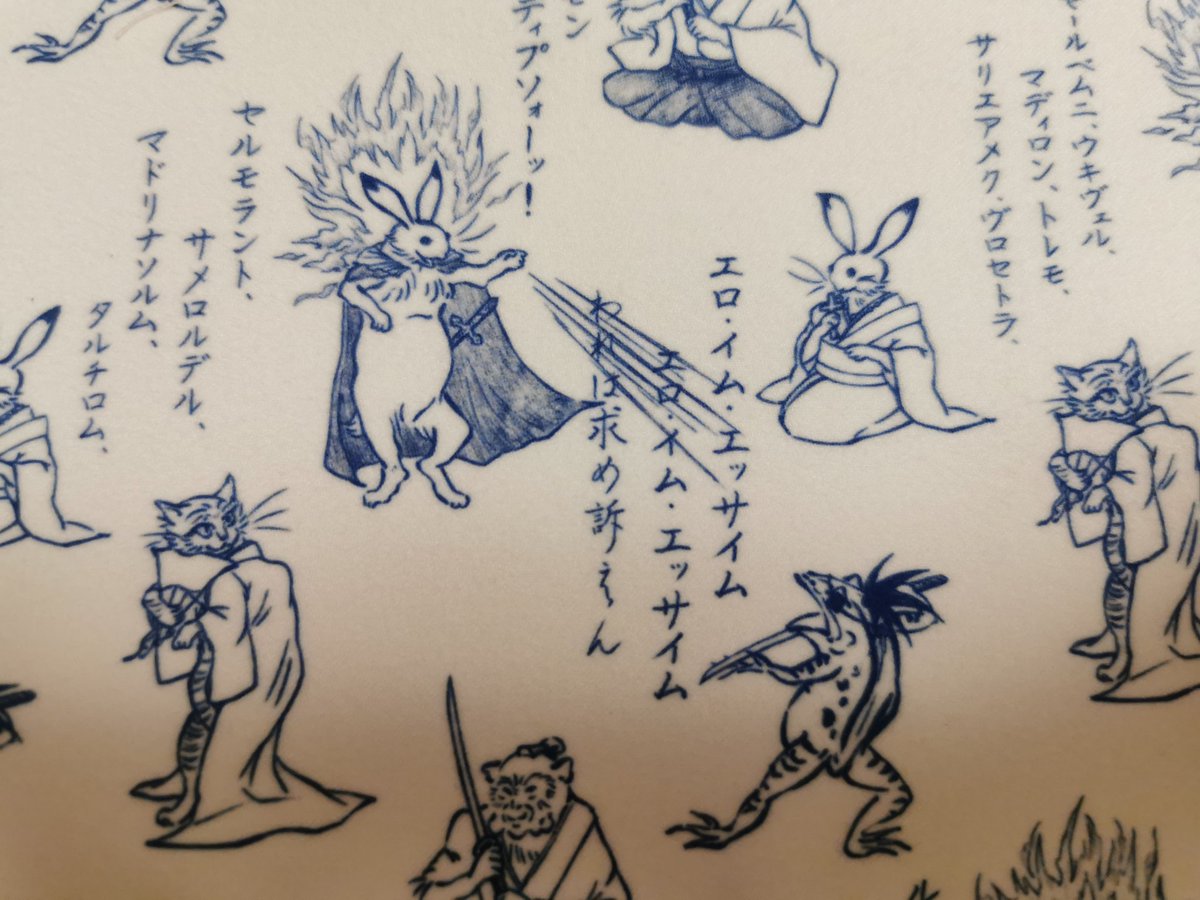 セールペムニ、ウキヴェル、
マディロン、トレモ、
サリエアメク、ヴロセトラ、
エロ・イム・エッサイム
エロ・イム・エッサイム
われは求め訴えん
ティプソォーッ!
セルモラント、
サメロルデル、
マドリナソルム、
タルチロム、